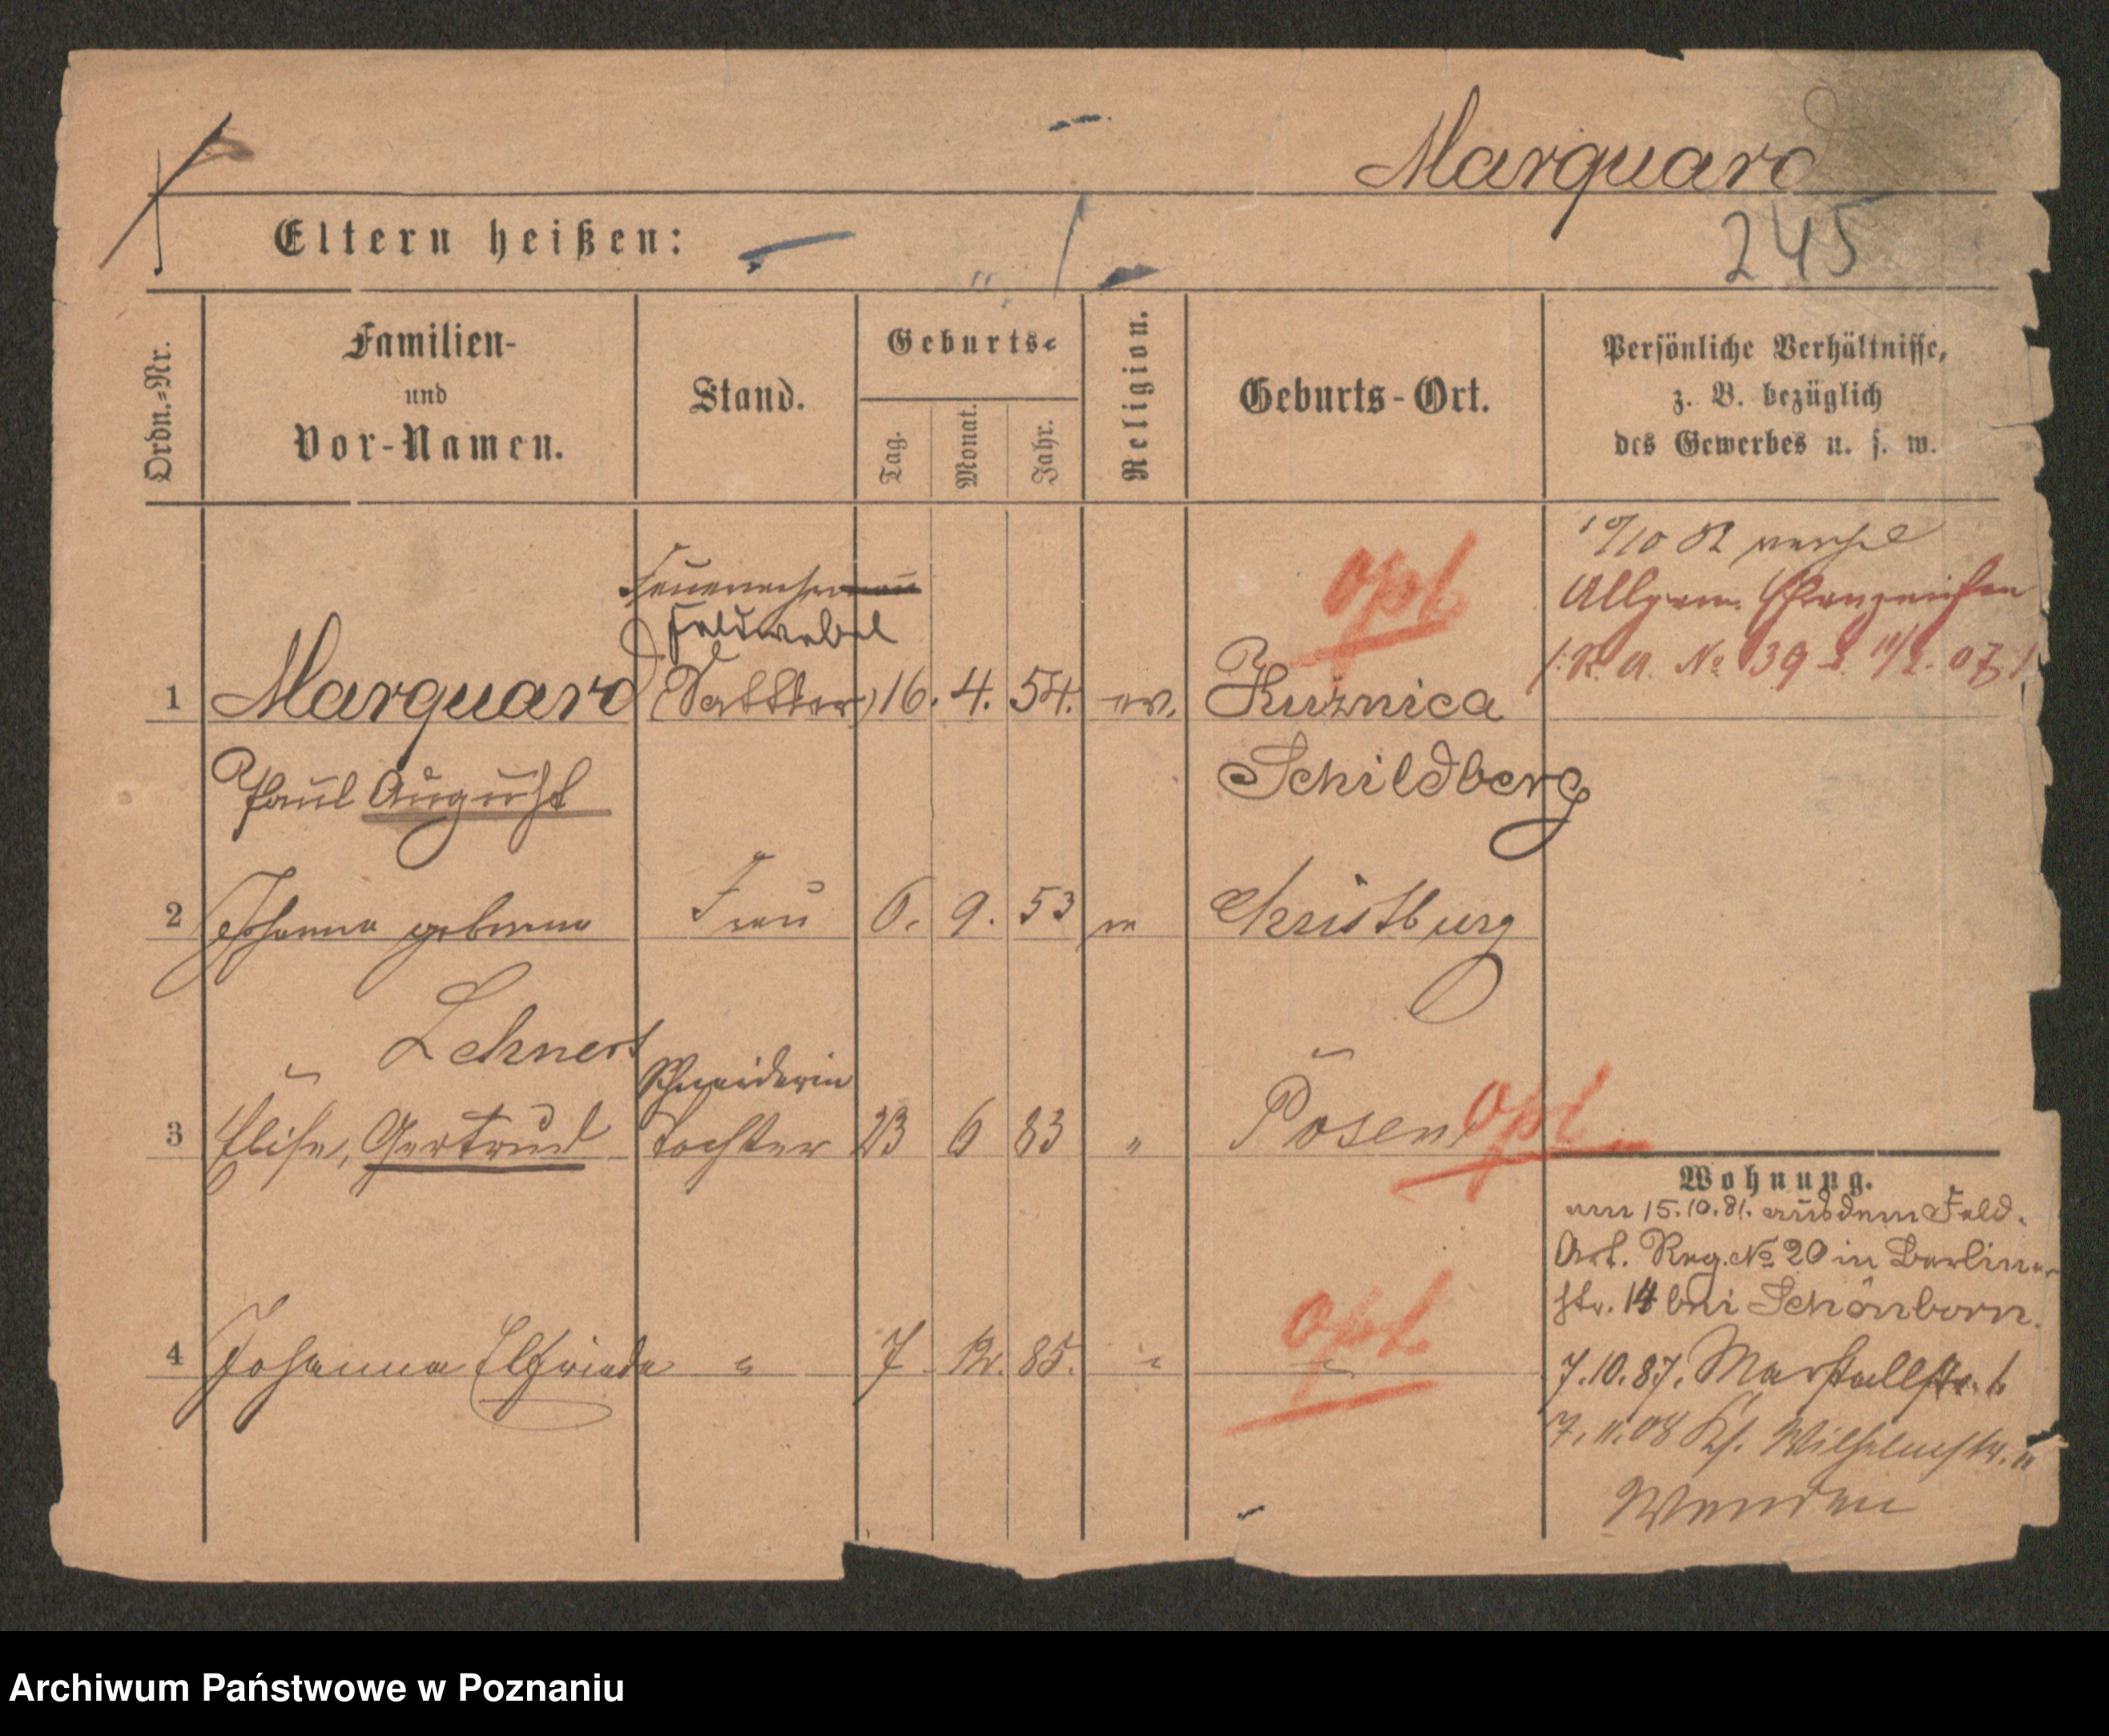 Marquard
245
Eltern heißen:
Ordn.=Nr.
Familien-
und
Vor-Namen.
Stand.
Geburts=
Tag.
Monat.
Jahr.
Religion.
Geburts-Ort.
Persönliche Verhältnisse,
z. B. bezüglich
des Gewerbes u. s. w.
Feuerwehrmann
Feldwebel
opt
Allgem. Ehrenzeichen
1 Marquard (Sattler) 16. 4. 54. ev. Kuźnica
Paul August Schildberg
2 Johanna geborene Frau 6. 9. 53 Christburg
Lehnert
Schneiderin
3 Elise, Gertrud Tochter 23 6 83 " Posen opt
Wohnung.
am 15.10.81. aus dem Feld.
Art. Reg. No 20 in Berliner
str. 14 bei Schönborn.
opt
4 Johanna Elfriede " 7 12. 85. " "
7.10.87. Marstallstr.
7.11.08 Wilhelmstr.
Wenden
Archiwum Państwowe w Poznaniu